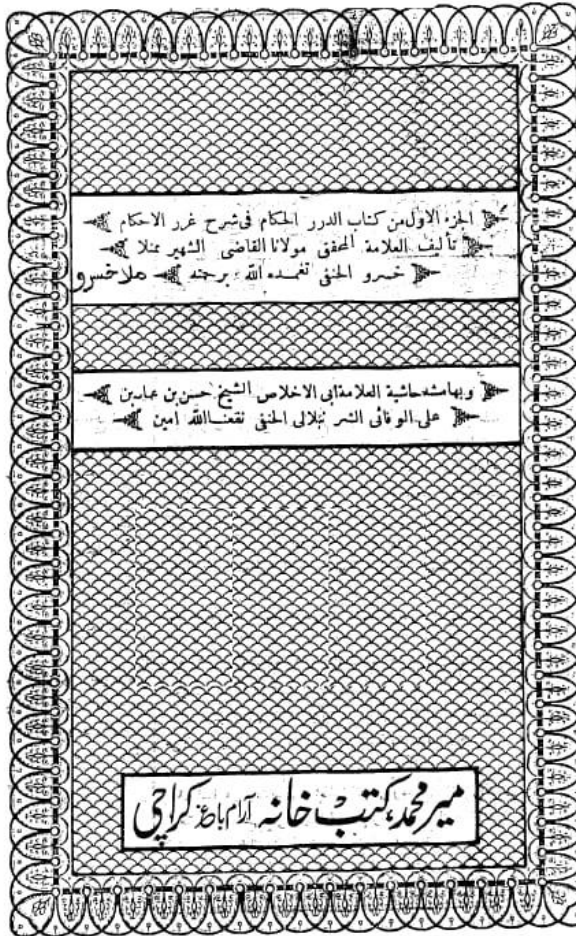 الجزء الاول من كتاب الدرر الحكام فى شرح غرر الاحكام
تأليف العلامة المحقق مولانا القاضى الشهير بمنلا
خسرو الحنفى تغمده الله برحمته ملا خسرو
وبهامشه حاشية العلامة ابى الاخلاص الشيخ حسن بن عمار بن
على الوفائى الشرنبلالى الحنفى نفعنا الله امين
مير محمد، كتب خانه آرام باغ کراچی